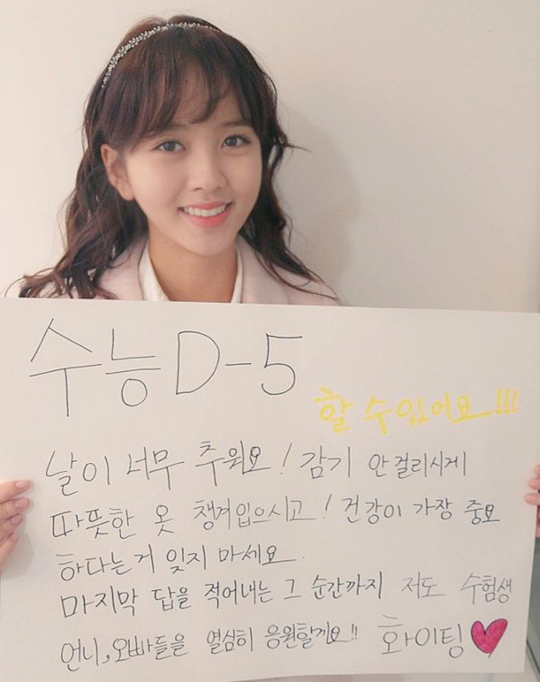 수능 D-5
할 수 있어요!!!
날이 너무 추워요! 감기 안 걸리시게
따뜻한 옷 챙겨입으시고! 건강이 가장 중요
하다는 거 잊지 마세요.
마지막 답을 적어내는 그 순간까지 저도 수험생
언니, 오빠들을 열심히 응원할게요!! 화이팅♥